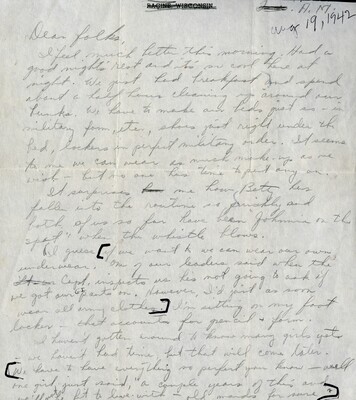 RACINE WISCONSIN
A. M.
19, 1942
Dear folks,
I feel much better this morning. Had a
good night's rest and its so cool here at
night. We just had breakfast and spend
about a half hour cleaning up around our
bunks. We have to make our beds just so - in
military form, etc., shoes just right under the
bed, lockers in perfect military order. It seems
to me we can wear as much make-up as we
wish - but no one has time to put any on.
It surprises me how Betty has
fallen into the routine so quickly, and
both of us so far have been "Johnnie on the
spot" when the whistle blows.
I guess [if we want to we can wear our own
underwear. One of our leaders said when the
Capt. inspects us he's not going to ask if
we got our pants on. However, I'd just as soon
wear all army clothes.] I'm sitting on my foot
locker - that accounts for pencil & form.
I haven't gotten around to know many girls yet
- we haven't had time, but that will come later.
[We have to have everything so perfect you know - well
one girl just said, "a couple years of this and
fit to live with - old maids for sure